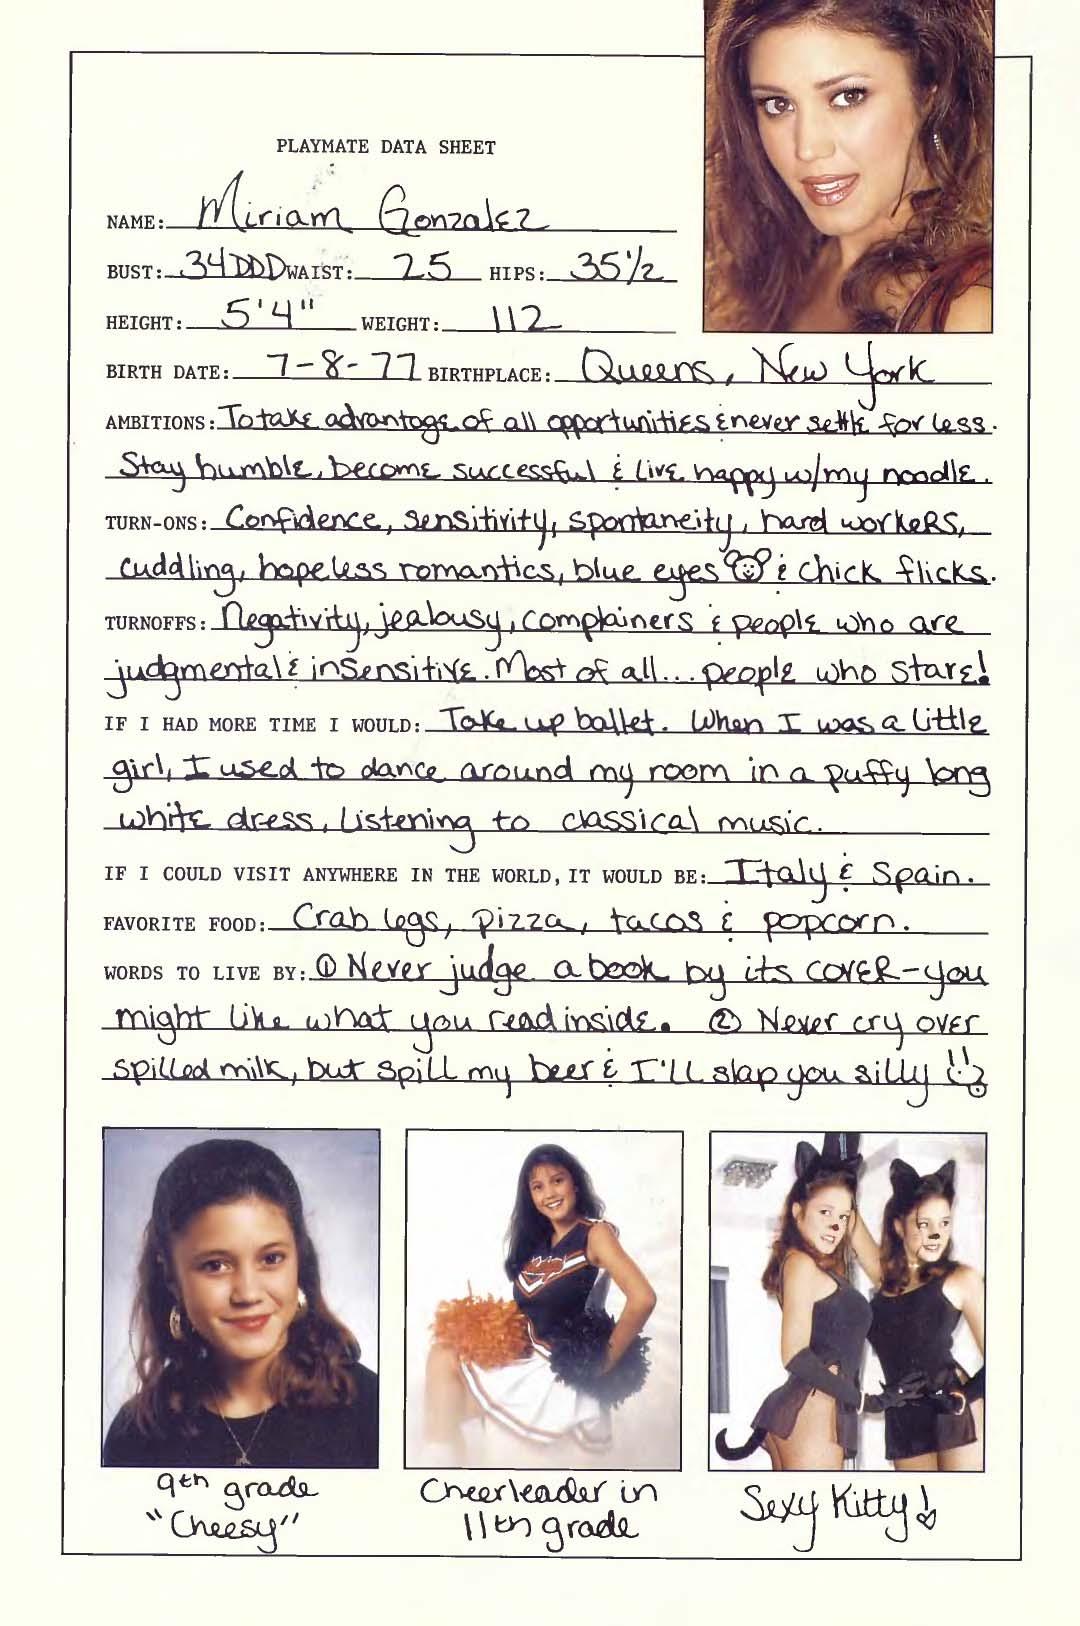 PLAYMATE DATA SHEET
NAME: Miriam Gonzalez
BUST: 34DDD WAIST: 25 HIPS: 35 1/2
HEIGHT: 5'4" WEIGHT: 112
BIRTH DATE: 7-8-77 BIRTHPLACE: Queens, New York
AMBITIONS: To take advantage of all opportunities & never settle for less.
Stay humble, become successful & live happy w/my noodle.
TURN-ONS: Confidence, sensitivity, spontaneity, hard workers,
cuddling, hopeless romantics, blue eyes & chick flicks.
TURNOFFS: Negativity, jealousy, complainers & people who are
judgmental & insensitive. Most of all... people who stare!
IF I HAD MORE TIME I WOULD: Take up ballet. When I was a little
girl, I used to dance around my room in a puffy long
white dress, listening to classical music.
IF I COULD VISIT ANYWHERE IN THE WORLD, IT WOULD BE: Italy & Spain.
FAVORITE FOOD: Crab legs, pizza, tacos & popcorn.
WORDS TO LIVE BY: ① Never judge a book by its cover-you
might like what you read inside. ② Never cry over
spilled milk, but spill my beer & I'll slap you silly
9th grade
"Cheesy"
Cheerleader in
11th grade
Sexy Kitty!